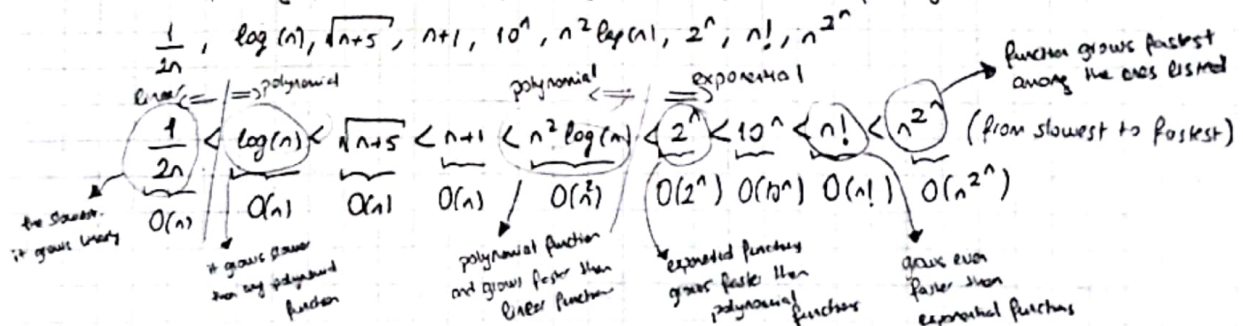 1/2n , log(n), √n+5 , n+1 , 10^n , n^2 log(n), 2^n , n! , n^2^n
function grows fastest
among the ones listed
linear <= => polynomial
polynomial <= => exponential
1/2n < log(n) < √n+5 < n+1 < n^2 log(n) < 2^n < 10^n < n! < n^2^n (from slowest to fastest)
O(n) O(n) O(n) O(n) O(n^2) O(2^n) O(10^n) O(n!) O(n^2^n)
the slowest.
it grows linearly
it grows slower
than any polynomial
function
polynomial function
and grows faster than
linear functions
exponential functions
grows faster than
polynomial
functions
grows even
faster than
exponential functions